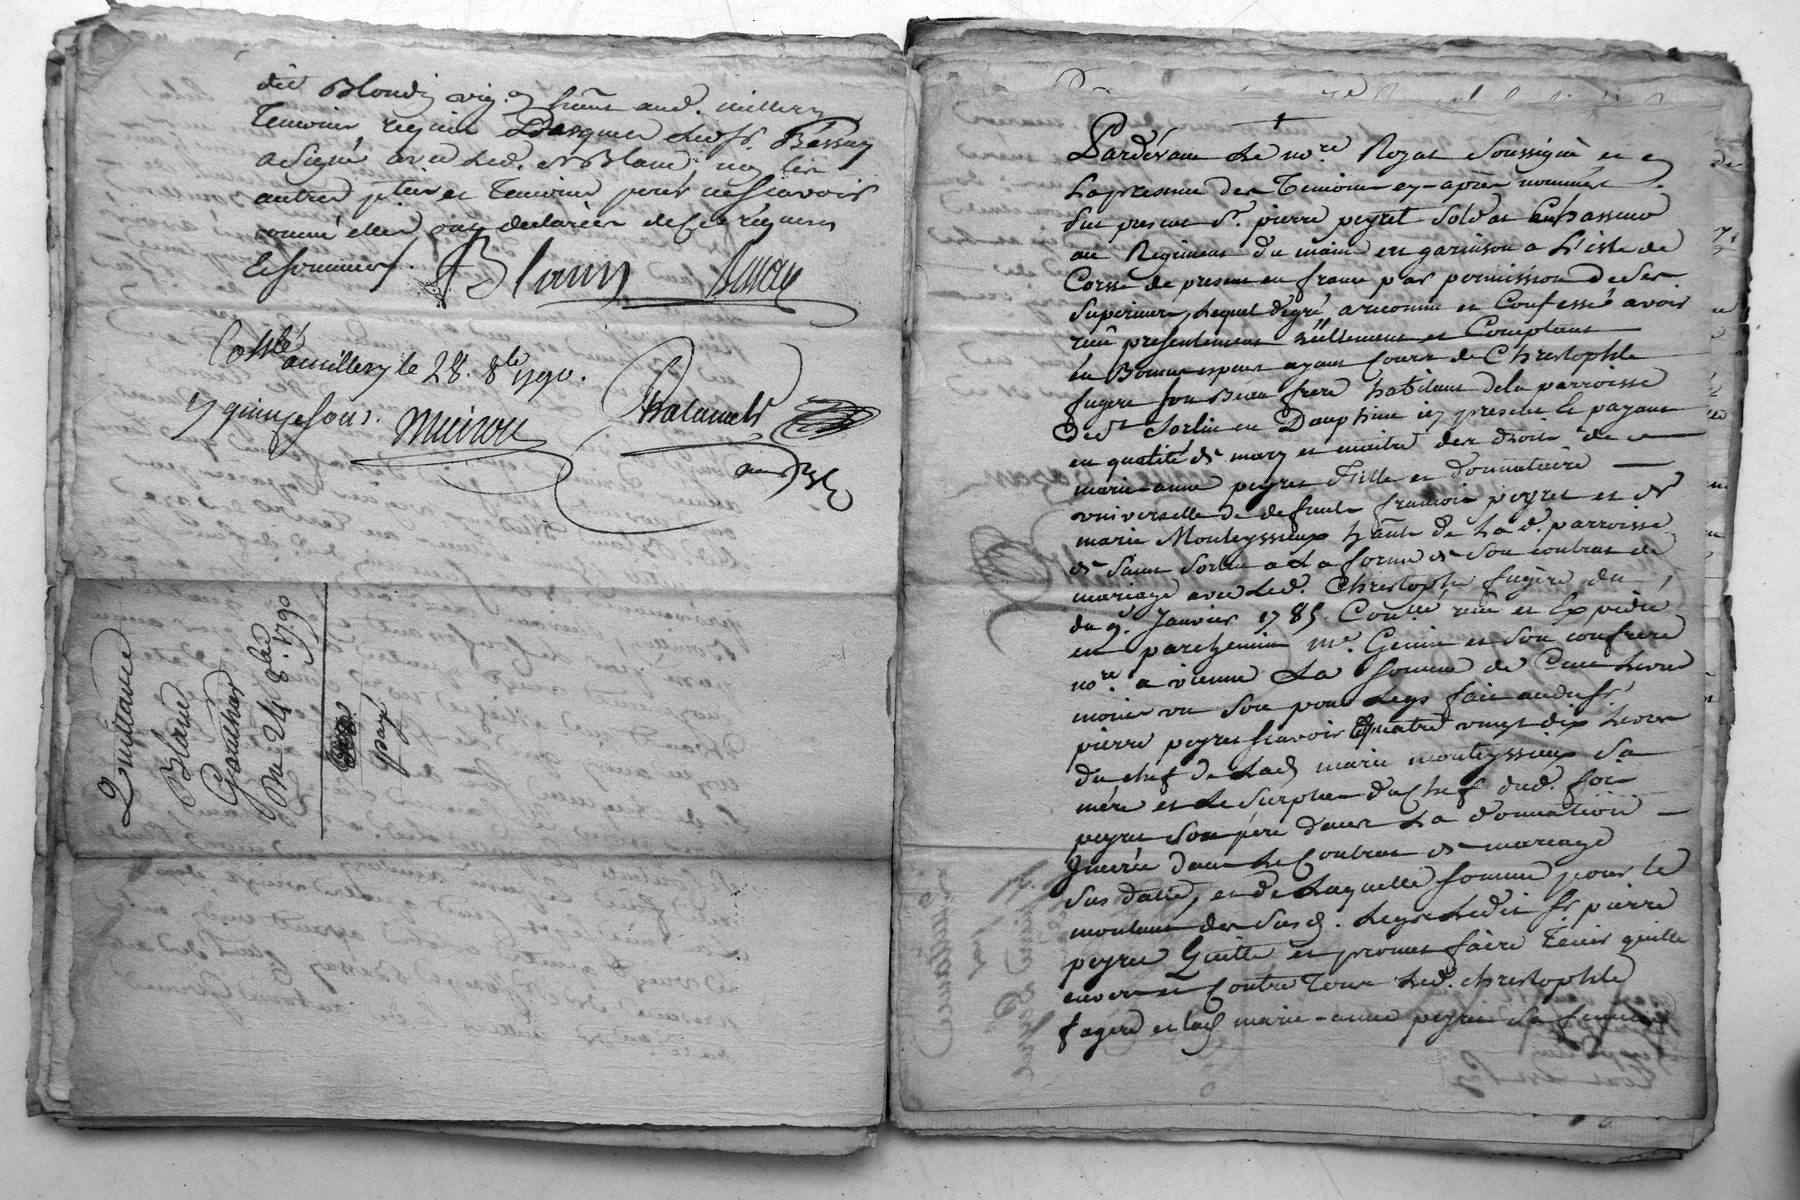 dit Blondin
temoins requis led. sr. Bessay
a signé avec led. sr Blanc non les
autres pties et temoins pour ne scavoir
comme elles ont declarées de ce requises
et sommées.
Blanc
Collé
a millery le 28. 8bre 1790.
quinze sous.
Quittance
Blanc
Gauthier
Du 24 8bre 1790
payé
Pardevant le nore. Royal soussigné et en
la presence des temoins cy-après nommés
fut present Sr. pierre peyret soldat chasseur
au Regiment du maine en garnison a l'isle de
Corse de present en france par permission de ses
superieurs, lequel de gré a reconnu et confessé avoir
reçu presentement réellement et comptant
en bonnes especes ayant cours de Christophle
fugere son beau frere habitant de la parroisse
de st Sorlin en Dauphiné icy present le payant
en qualité de mary et maitre des droits de
marie-anne peyret fille et donnataire
universelle de defunts francois peyret et de
marie Monteyssieux hante de lad. parroisse
de saint Sorlin a la forme de son contrat de
mariage avec led. Christophle fugere du
du 9. Janvier 1785. Conllé. reçu et Expedié
en parchemin me. Genin et son confrere
nore. a vienne La somme de Cent livres
moins un sou pour legs fait aud. sr
pierre peyret scavoir quatre vingt dix livres
du chef de lad. marie monteyssieux sa
mère et le surplus du chef dud. fois
peyret son père dans la donnation
Inserée dans le Contrat de mariage
sus datté, et de laquelle somme pour le
montant des susd. legs ledit sr. pierre
peyret Quitte et promet faire tenir quitte
envers et Contre tous led. christophle
fugere et lad. marie-anne peyret sa femme